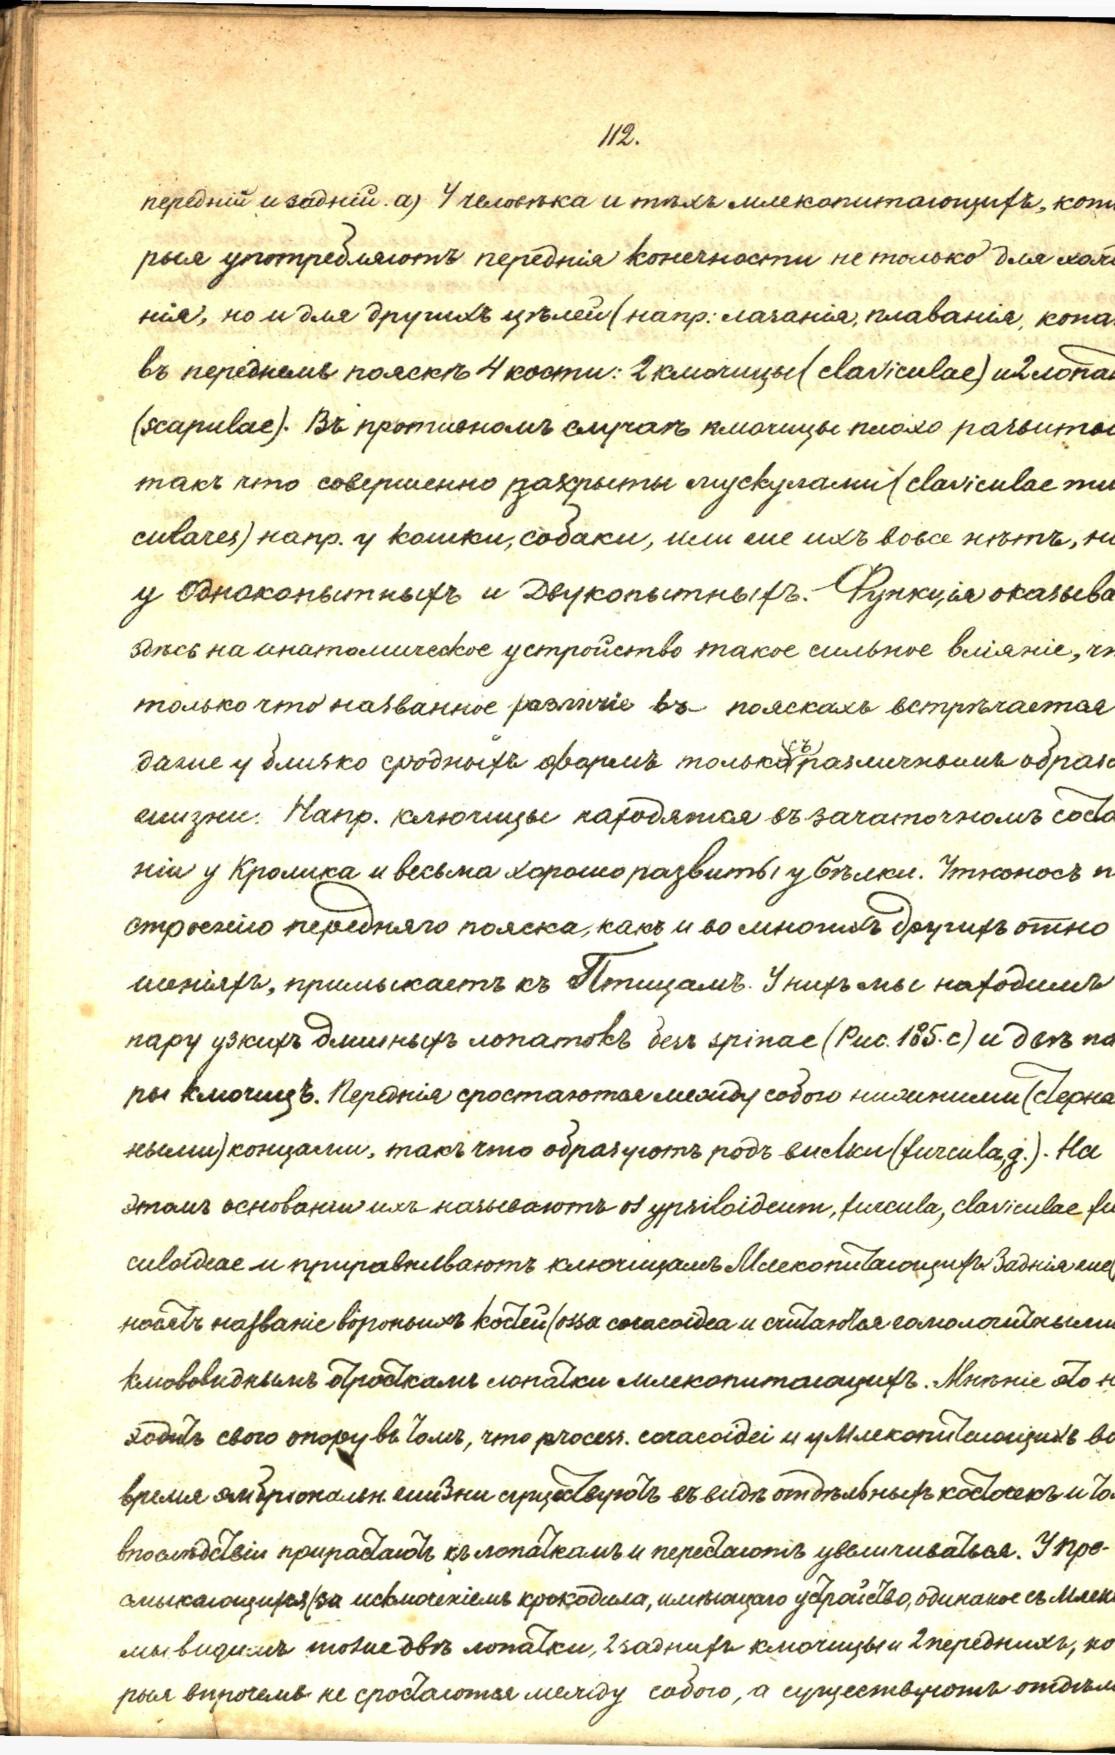 112.
передній и задній. а) У человѣка и тѣхъ млекопитающихъ, кото
рыя употребляютъ переднія конечности не только для хожде
нія, но и для другихъ цѣлей (напр: лазанія, плаванія, копа
въ переднемъ пояскѣ 4 кости: 2 ключицы (claviculae) и 2 лопат
(scapulae). Въ противномъ случаѣ ключицы плохо развиты
такъ что совершенно закрыты мускулами (claviculae mus
culares) напр. у кошки, собаки, или же ихъ вовсе нѣтъ, н
у Однокопытныхъ и Двукопытныхъ. Функція оказыва
здѣсь на анатомическое устройство такое сильное вліяніе, чт
только что названное различіе въ пояскахъ встрѣчается
даже у близко сродныхъ формъ только съ различнымъ образо
жизни. Напр. ключицы находятся въ зачаточномъ состо
ніи у Кролика и весьма хорошо развиты у Бѣлки. Утконосъ п
строенію передняго пояска, какъ и во многихъ другихъ отно
шеніяхъ, примыкаетъ къ Птицамъ. У нихъ мы находимъ
пару узкихъ длинныхъ лопатокъ безъ spinae (Рис. 185. с) и двѣ па
ры ключицъ. Переднія сростаются между собою нижними (стерна
ными) концами, такъ что образуютъ родъ вилки (furcula, g.). На
этомъ основаніи ихъ называютъ os ypsiloideum, furcula, claviculae fur
culoideae и приравниваютъ ключицамъ Млекопитающихъ. Заднія же
носятъ названіе вороньихъ костей (ossa coracoidea и считаются гомологичными
клювовиднымъ отросткамъ лопатки млекопитающихъ. Мнѣніе это н
ходитъ свою опору въ томъ, что process. coracoidei и у Млекопитающихъ во
время эмбріональн. жизни существуютъ въ видѣ отдѣльныхъ косточекъ и то
впослѣдствіи прирастаютъ къ лопаткамъ и перестаютъ увеличиваться. У пре-
смыкающихся (за исключеніемъ крокодила, имѣющаго устройство, одинакое съ Млек
мы видимъ тоже двѣ лопатки, 2 заднихъ ключицы и 2 переднихъ, ко
рыя впрочемъ не сростаются между собою, а существуютъ отдѣль